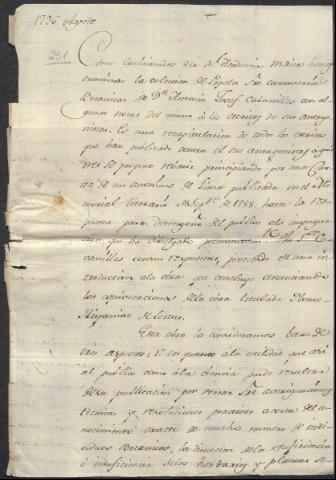 1796 Agosto
251
Como comisionados de la Rl. Academia Medica hemos
examinado la coleccion de Papeles sre. controversias
Botanicas de Dn. Antonio Josef Cabanilles con al
gunas notas del mismo à los escritos de sus antago
nistas. Es una recapitulacion de todos los escritos
que han publicado contra el sus antagonistas à qui
enes se propuso reunir principiando por una Car
ta de un anonimo de Lima publicada en el Me
morial literario de Sepre. de 1788. hasta la res
puesta para desengaño del publico à la impugna
cion que ha divulgado prematuramente Dn.
Cabanilles contra respuestas, precedido de una in
troduccion à la obra que concluye anunciando
las aprobaciones de la obra titulada Florae
Hispaniae Delectus.
Esta obra la consideramos baxo de
tres aspectos; 1º en quanto à la utilidad que asi
al publico como à la ciencia puede resultar
de su publicacion por versar sre. averiguaciones
tecnicas y resoluciones practicas acerca del co
nocimiento exacto de mucho numero de indi
viduos Botanicos, la decision de la suficiencia
ò insuficiencia de los herbarios y plantas se